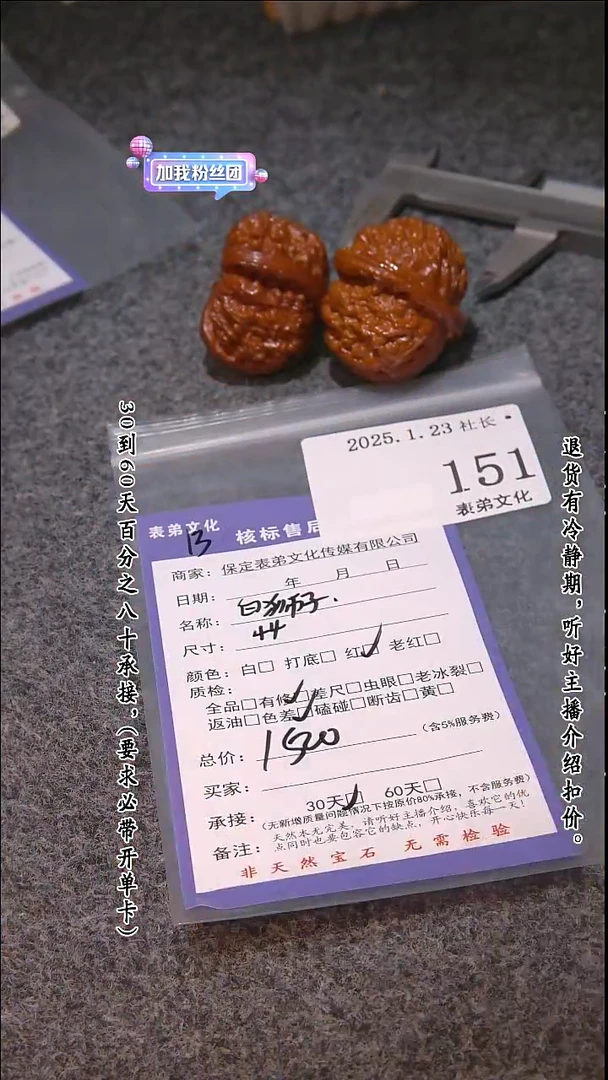 加我粉丝团
30到60天百分之八十承接，（要求必带开单卡）
退货有冷静期，听好主播介绍扣价。
2025.1.23 社长
151
表弟文化
表弟文化
13
核标售后
商家：保定表弟文化传媒有限公司
日期： 年 月 日
名称：白狮子.
尺寸：44
颜色：白□ 打底□ 红□ 老红□
质检：
全品□有修□差尺□虫眼□老冰裂□
返油□色差□磕碰□断齿□黄□
总价：1500 （含5%服务费）
买家：
承接：30天□ 60天□
（无新增质量问题情况下按原价80%承接，不含服务费）
备注：天然本无完美，请听好主播介绍，喜欢它的优
点同时也要包容它的缺点，开心快乐每一天！
非天然宝石 无需检验